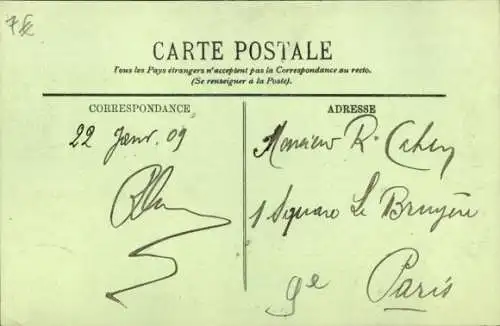 CARTE POSTALE
Tous les Pays étrangers n'acceptent pas la Correspondance au recto.
(Se renseigner à la Poste).
CORRESPONDANCE
22 Janv. 09
ADRESSE
Monsieur R. Cahen
1 Square La Bruyère
9e Paris